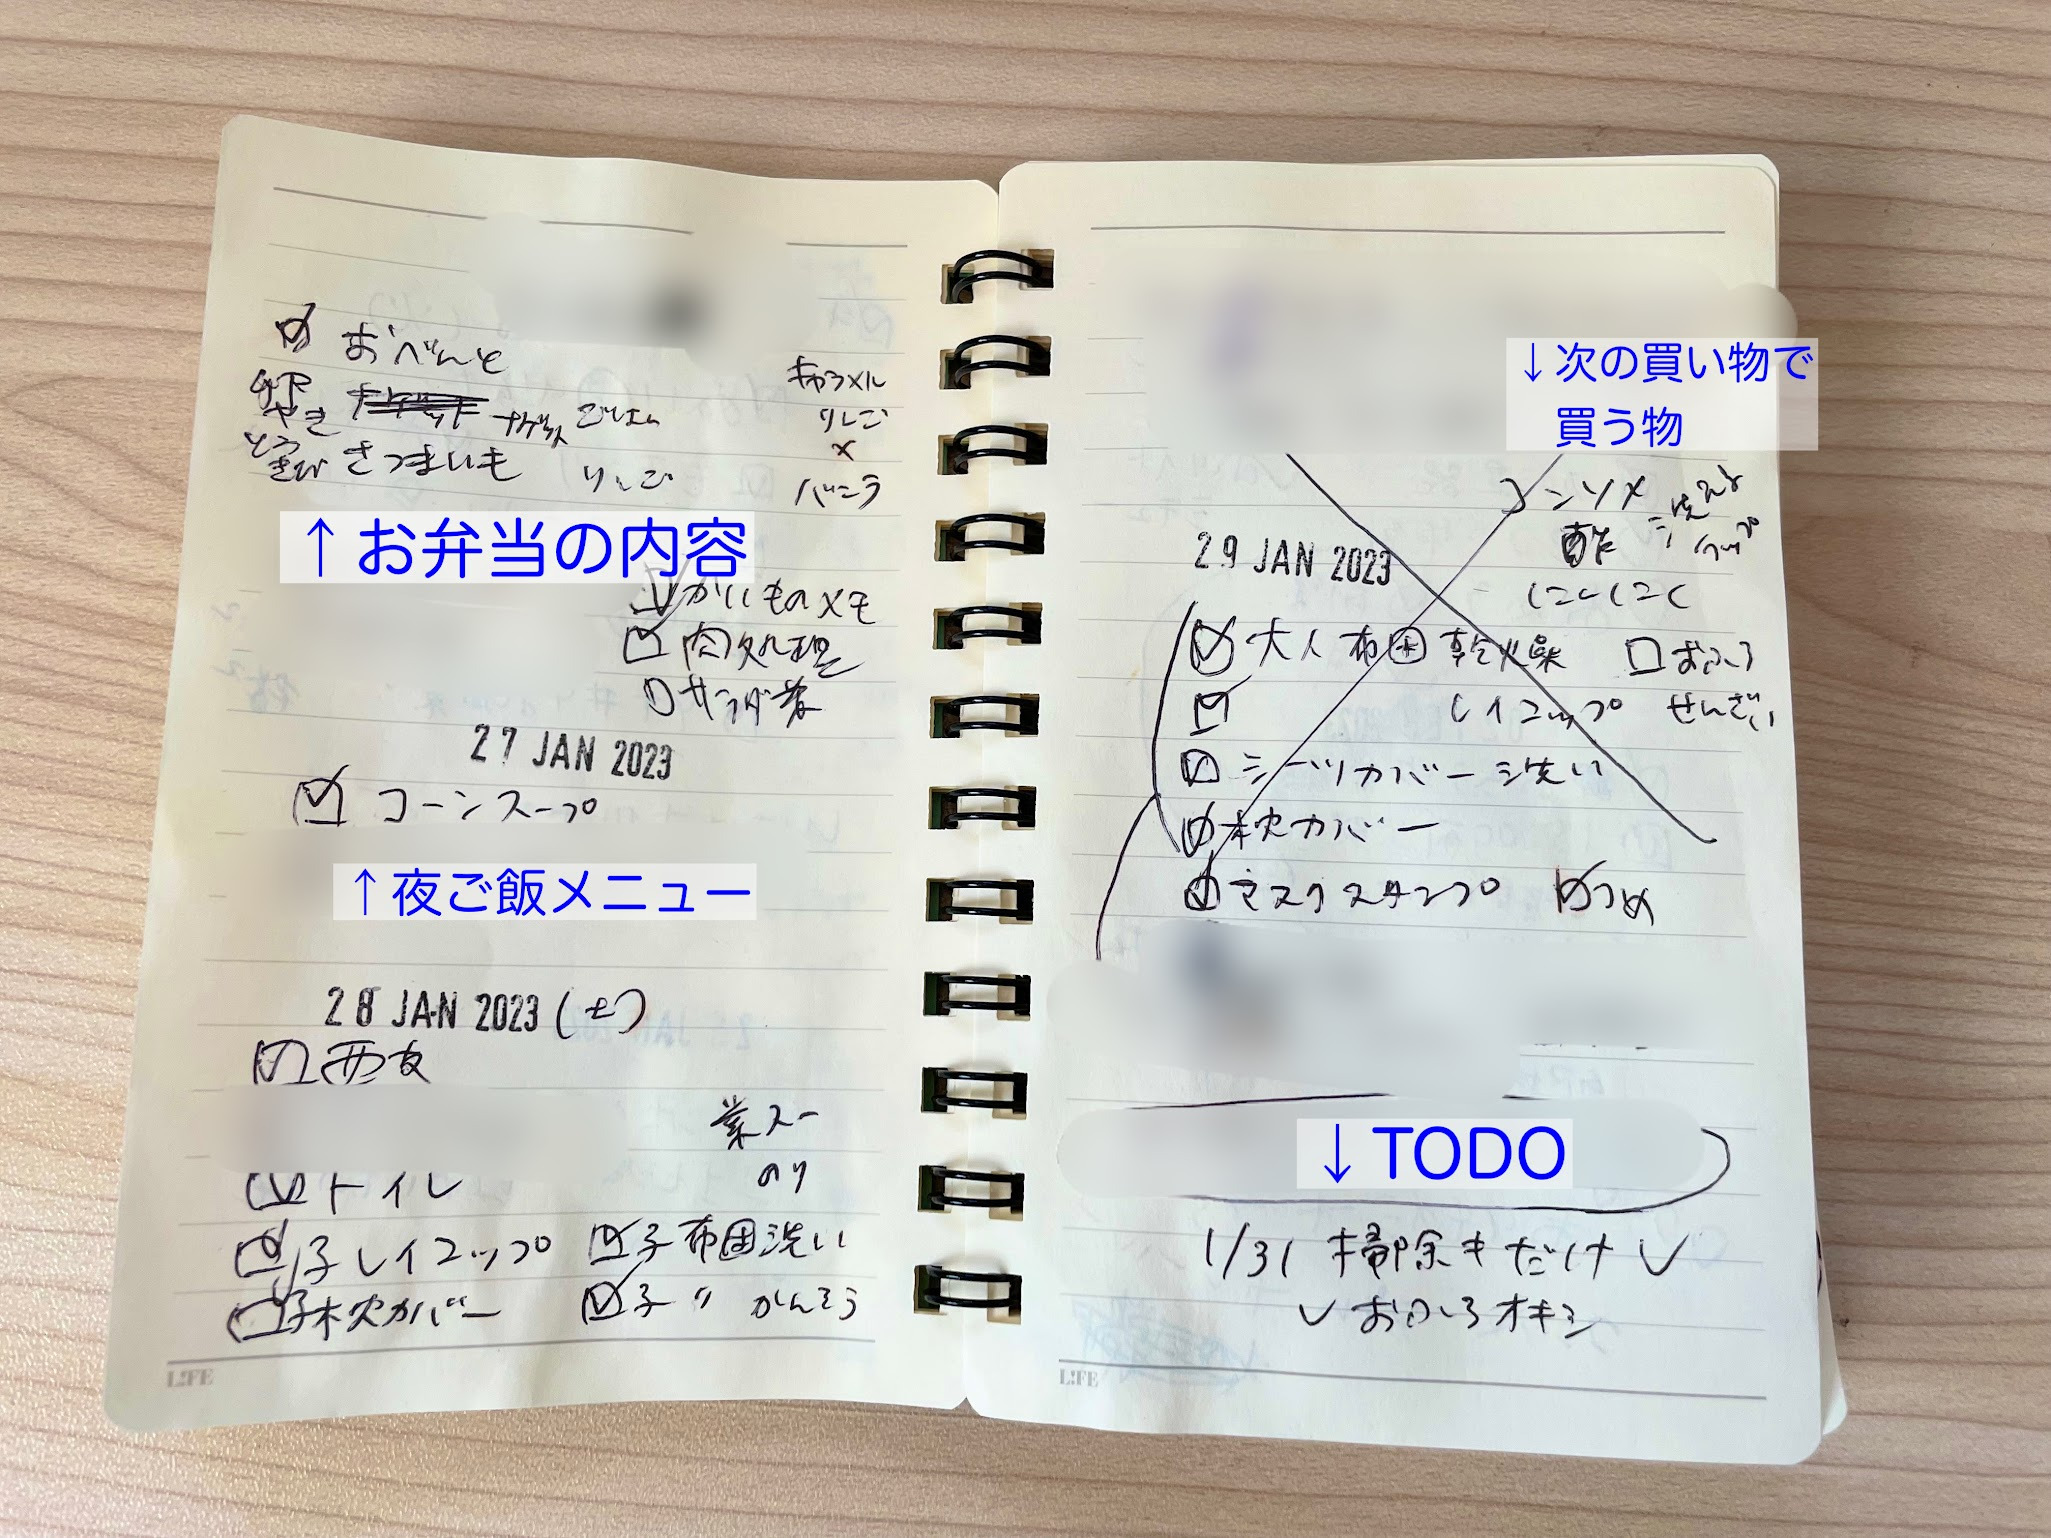 おべんと
卵やき ナゲット ごはん
とうきび さつまいも りんご
キャラメル
りんご
×
バニラ
↑お弁当の内容
かいものメモ
肉処理
サラダ巻
27 JAN 2023
コーンスープ
↑夜ご飯メニュー
28 JAN 2023 (土)
西友
業スー
のり
トイレ
子レイコップ 子布団洗い
子枕カバー 子 〃 かんそう
LIFE
↓次の買い物で
買う物
コンソメ
酢
にんにく
29 JAN 2023
大人布団乾燥 おふろ
レイコップ せんざい
シーツカバー洗い
枕カバー
マスクスタンプ つめ
↓TODO
1/31 掃除キだけ
おふろオキシ
LIFE